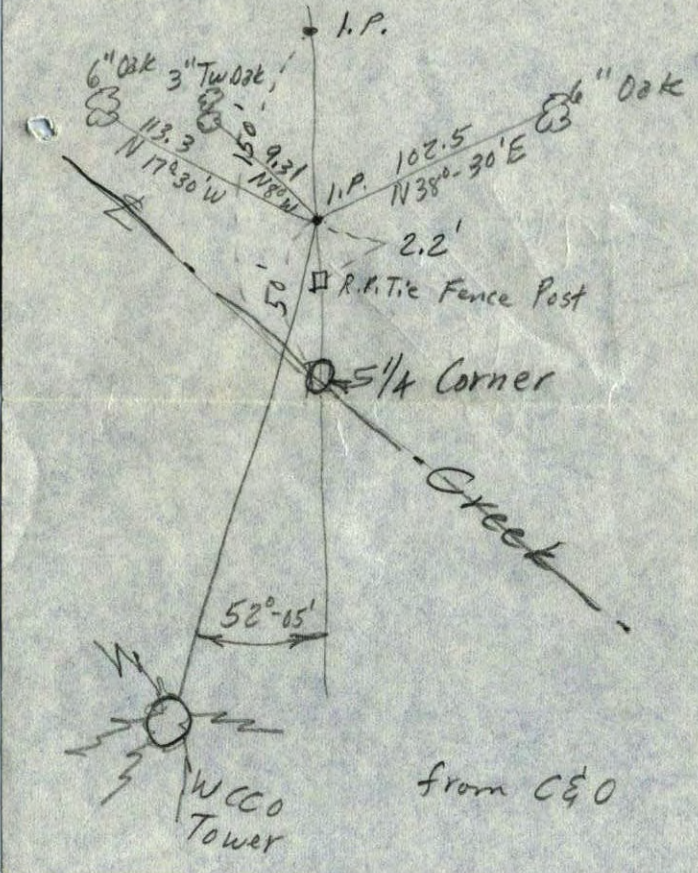 I.P.
6" Oak
3" Tw Oak
6" Oak
50'
113.3
N 17°30' W
9.31
N 8° W
I.P.
102.5
N 38°-30' E
2.2'
50'
R.R. Tie Fence Post
S 1/4 Corner
Creek
52°-05'
WCCO
Tower
from C&O